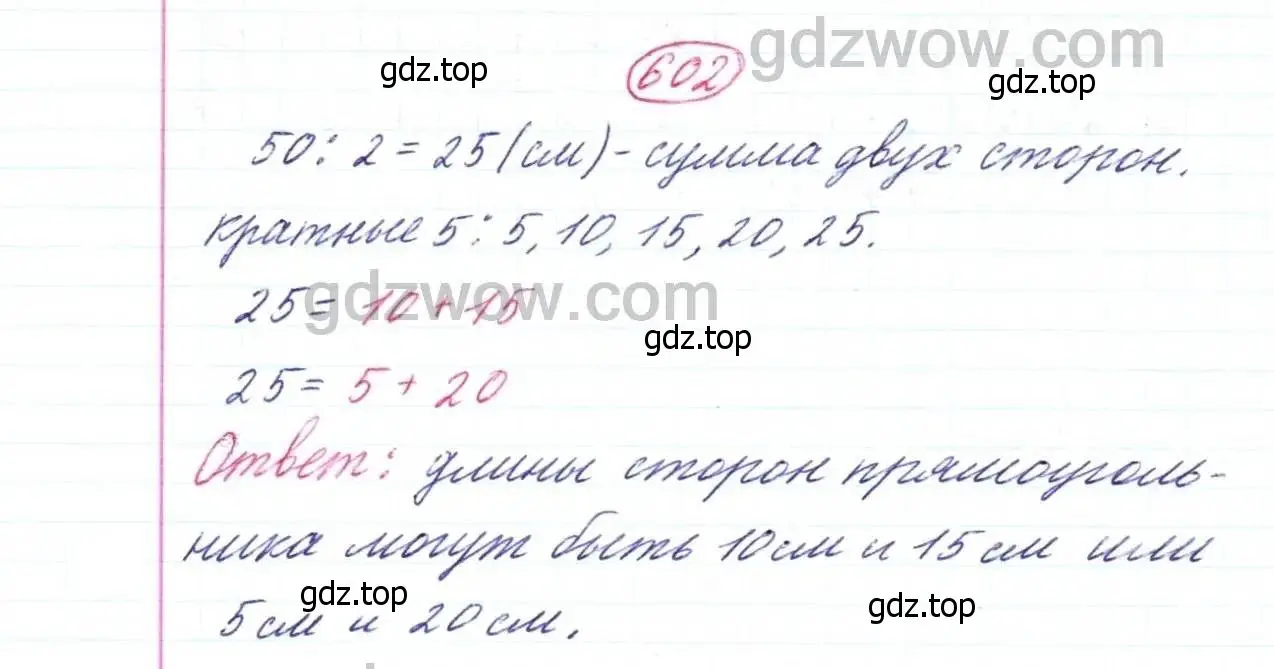 gdzwow.com
gdz.top 602 gdz.top
50 : 2 = 25 (см) - сумма двух сторон.
кратные 5 : 5, 10, 15, 20, 25.
gdzwow.com
25 = 10 + 15
gdz.top
25 = 5 + 20
Ответ: длины сторон прямоуголь-
ника могут быть 10 см и 15 см или
gdz.top gdz.top
5 см и 20 см.